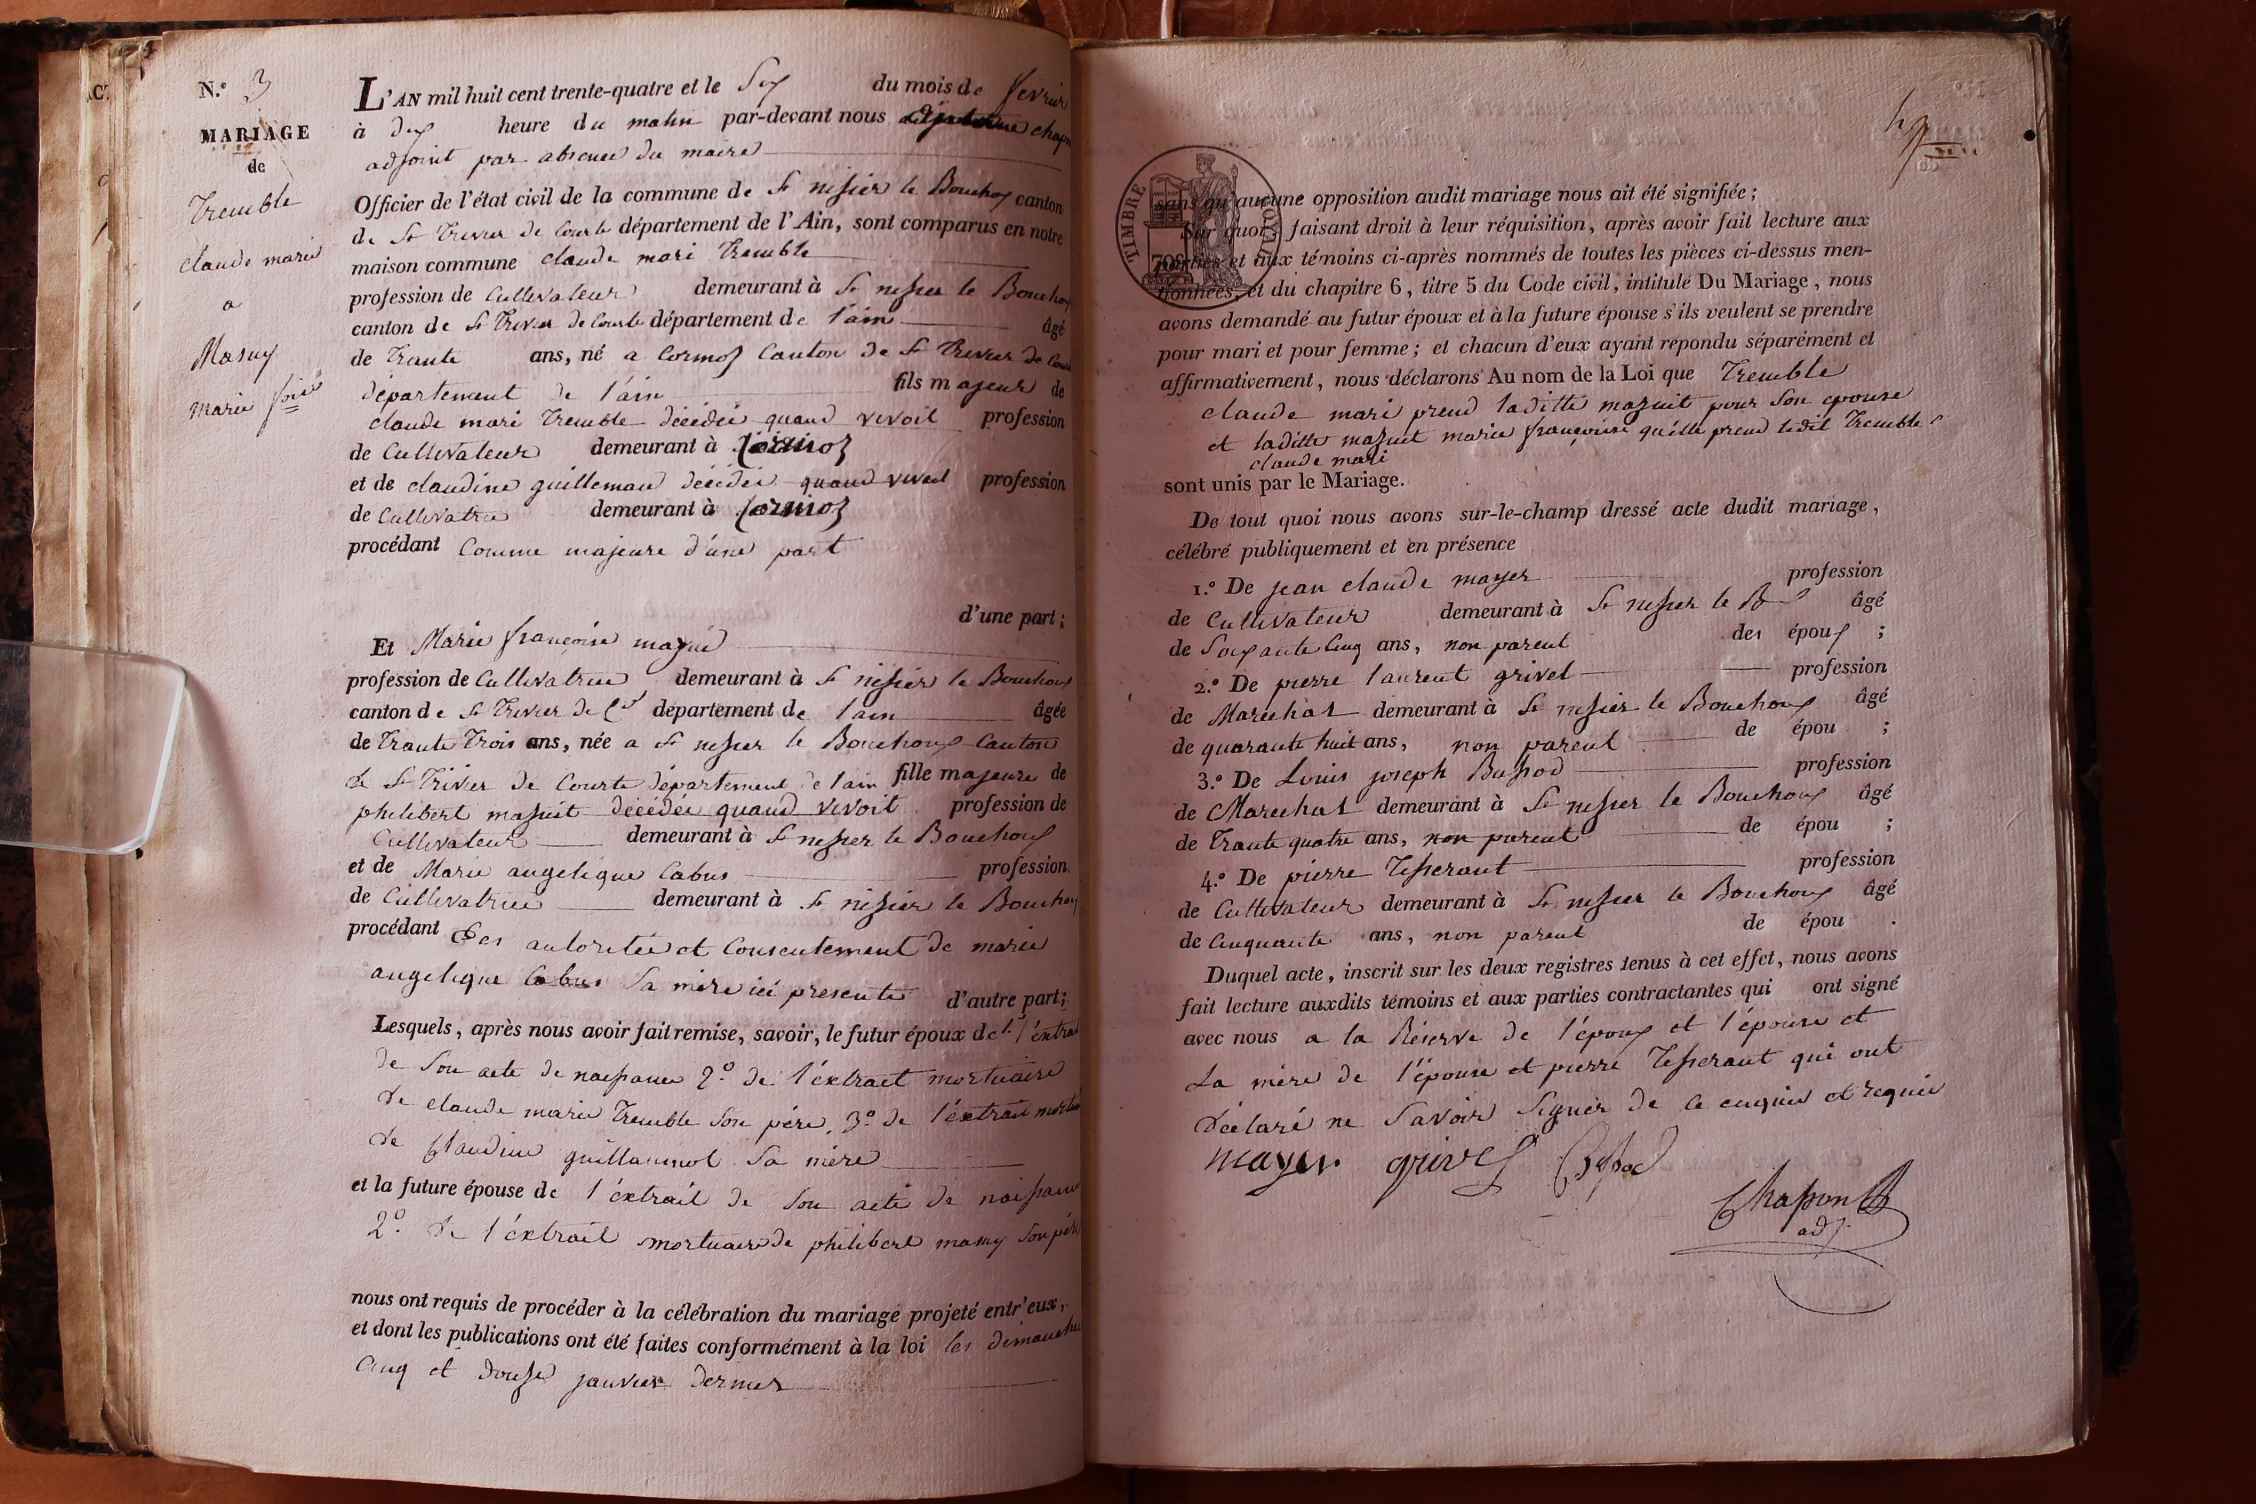 N.o 3
MARIAGE
de
Tremble
claude marie
a
Masuy
marie fçoise
L'AN mil huit cent trente-quatre et le Six du mois de fevrier
à dix heure du matin par-devant nous
adjoint par absence du maire
Officier de l'état civil de la commune de St nisier le Bouchoux canton
de St Trivier de Courte département de l'Ain, sont comparus en notre
maison commune claude mari Tremble
profession de Cultivateur demeurant à St nisier le Bouchoux
canton de St Trivier de Courte département de l'ain âgé
de Trante ans, né a Cormoz Canton de St Trivier de Courte
département de l'ain fils majeur de
claude mari Tremble décédée quand vivoit profession
de Cultivateur demeurant à Cormoz
et de claudine guilleman décédée quand vivoit profession
de Cultivatrice demeurant à Cormoz
procédant Comme majeure d'une part
d'une part;
Et Marie françoise mazué
profession de Cultivatrice demeurant à St nisier le Bouchoux
canton de St Trivier de Ct département de l'ain âgée
de Trante Trois ans, née a St nisier le Bouchoux Canton
de St Trivier de Courte département de l'ain fille majeure de
philibert masuit décédée quand vivoit profession de
Cultivateur demeurant à St nisier le Bouchoux
et de Marie angelique Cabus profession
de Cultivatrice demeurant à St nisier le Bouchoux
procédant Des autoritée et Consentement de marie
angelique Cabus Sa mère ici presente d'autre part;
Lesquels, après nous avoir fait remise, savoir, le futur époux de 1.o l'extrait
de Son acte de naissance 2.o de l'éxtrait mortuaire
de claude marie Tremble Son père, 3.o de l'éxtrait mortu
de Claudine guillaumot Sa mère
et la future épouse de l'éxtrait de Son acte de naissance
2.o de l'éxtrait mortuaire de philibert masuy Son père
nous ont requis de procéder à la célébration du mariage projeté entr'eux,
et dont les publications ont été faites conformément à la loi les dimanches
Cinq et Douse janvier Dernier
TIMBRE ROYAL
sans qu'aucune opposition audit mariage nous ait été signifiée;
Sur quoi, faisant droit à leur réquisition, après avoir fait lecture aux
parties et aux témoins ci-après nommés de toutes les pièces ci-dessus men-
tionnées, et du chapitre 6, titre 5 du Code civil, intitulé Du Mariage, nous
avons demandé au futur époux et à la future épouse s'ils veulent se prendre
pour mari et pour femme; et chacun d'eux ayant répondu séparément et
affirmativement, nous déclarons Au nom de la Loi que Tremble
claude mari prend laditte mazuit pour Son epouse
et laditte mazuit marie françoise qu'elle prend ledit Tremble
claude mari
sont unis par le Mariage.
De tout quoi nous avons sur-le-champ dressé acte dudit mariage,
célébré publiquement et en présence
1.o De jean claude mayer profession
de Cultivateur demeurant à St nisier le B âgé
de Soixante Cinq ans, non parent des époux ;
2.o De pierre laurent grivel profession
de Marechal demeurant à St nisier le Bouchoux âgé
de quarante huit ans, non parent de épou ;
3.o De Louis joseph Bussod profession
de Marechal demeurant à St nisier le Bouchoux âgé
de Trante quatre ans, non parent de épou ;
4.o De pierre Tisserant profession
de Cultivateur demeurant à St nisier le Bouchoux âgé
de Cinquante ans, non parent de épou .
Duquel acte, inscrit sur les deux registres tenus à cet effet, nous avons
fait lecture auxdits témoins et aux parties contractantes qui ont signé
avec nous a la Réserve de l'époux et l'épouse et
La mère de l'épouse et pierre Tisserant qui ont
Déclaré ne Savoir Signer de ce enquis et requis
mayer grivel Bussod
Chapon
adj.